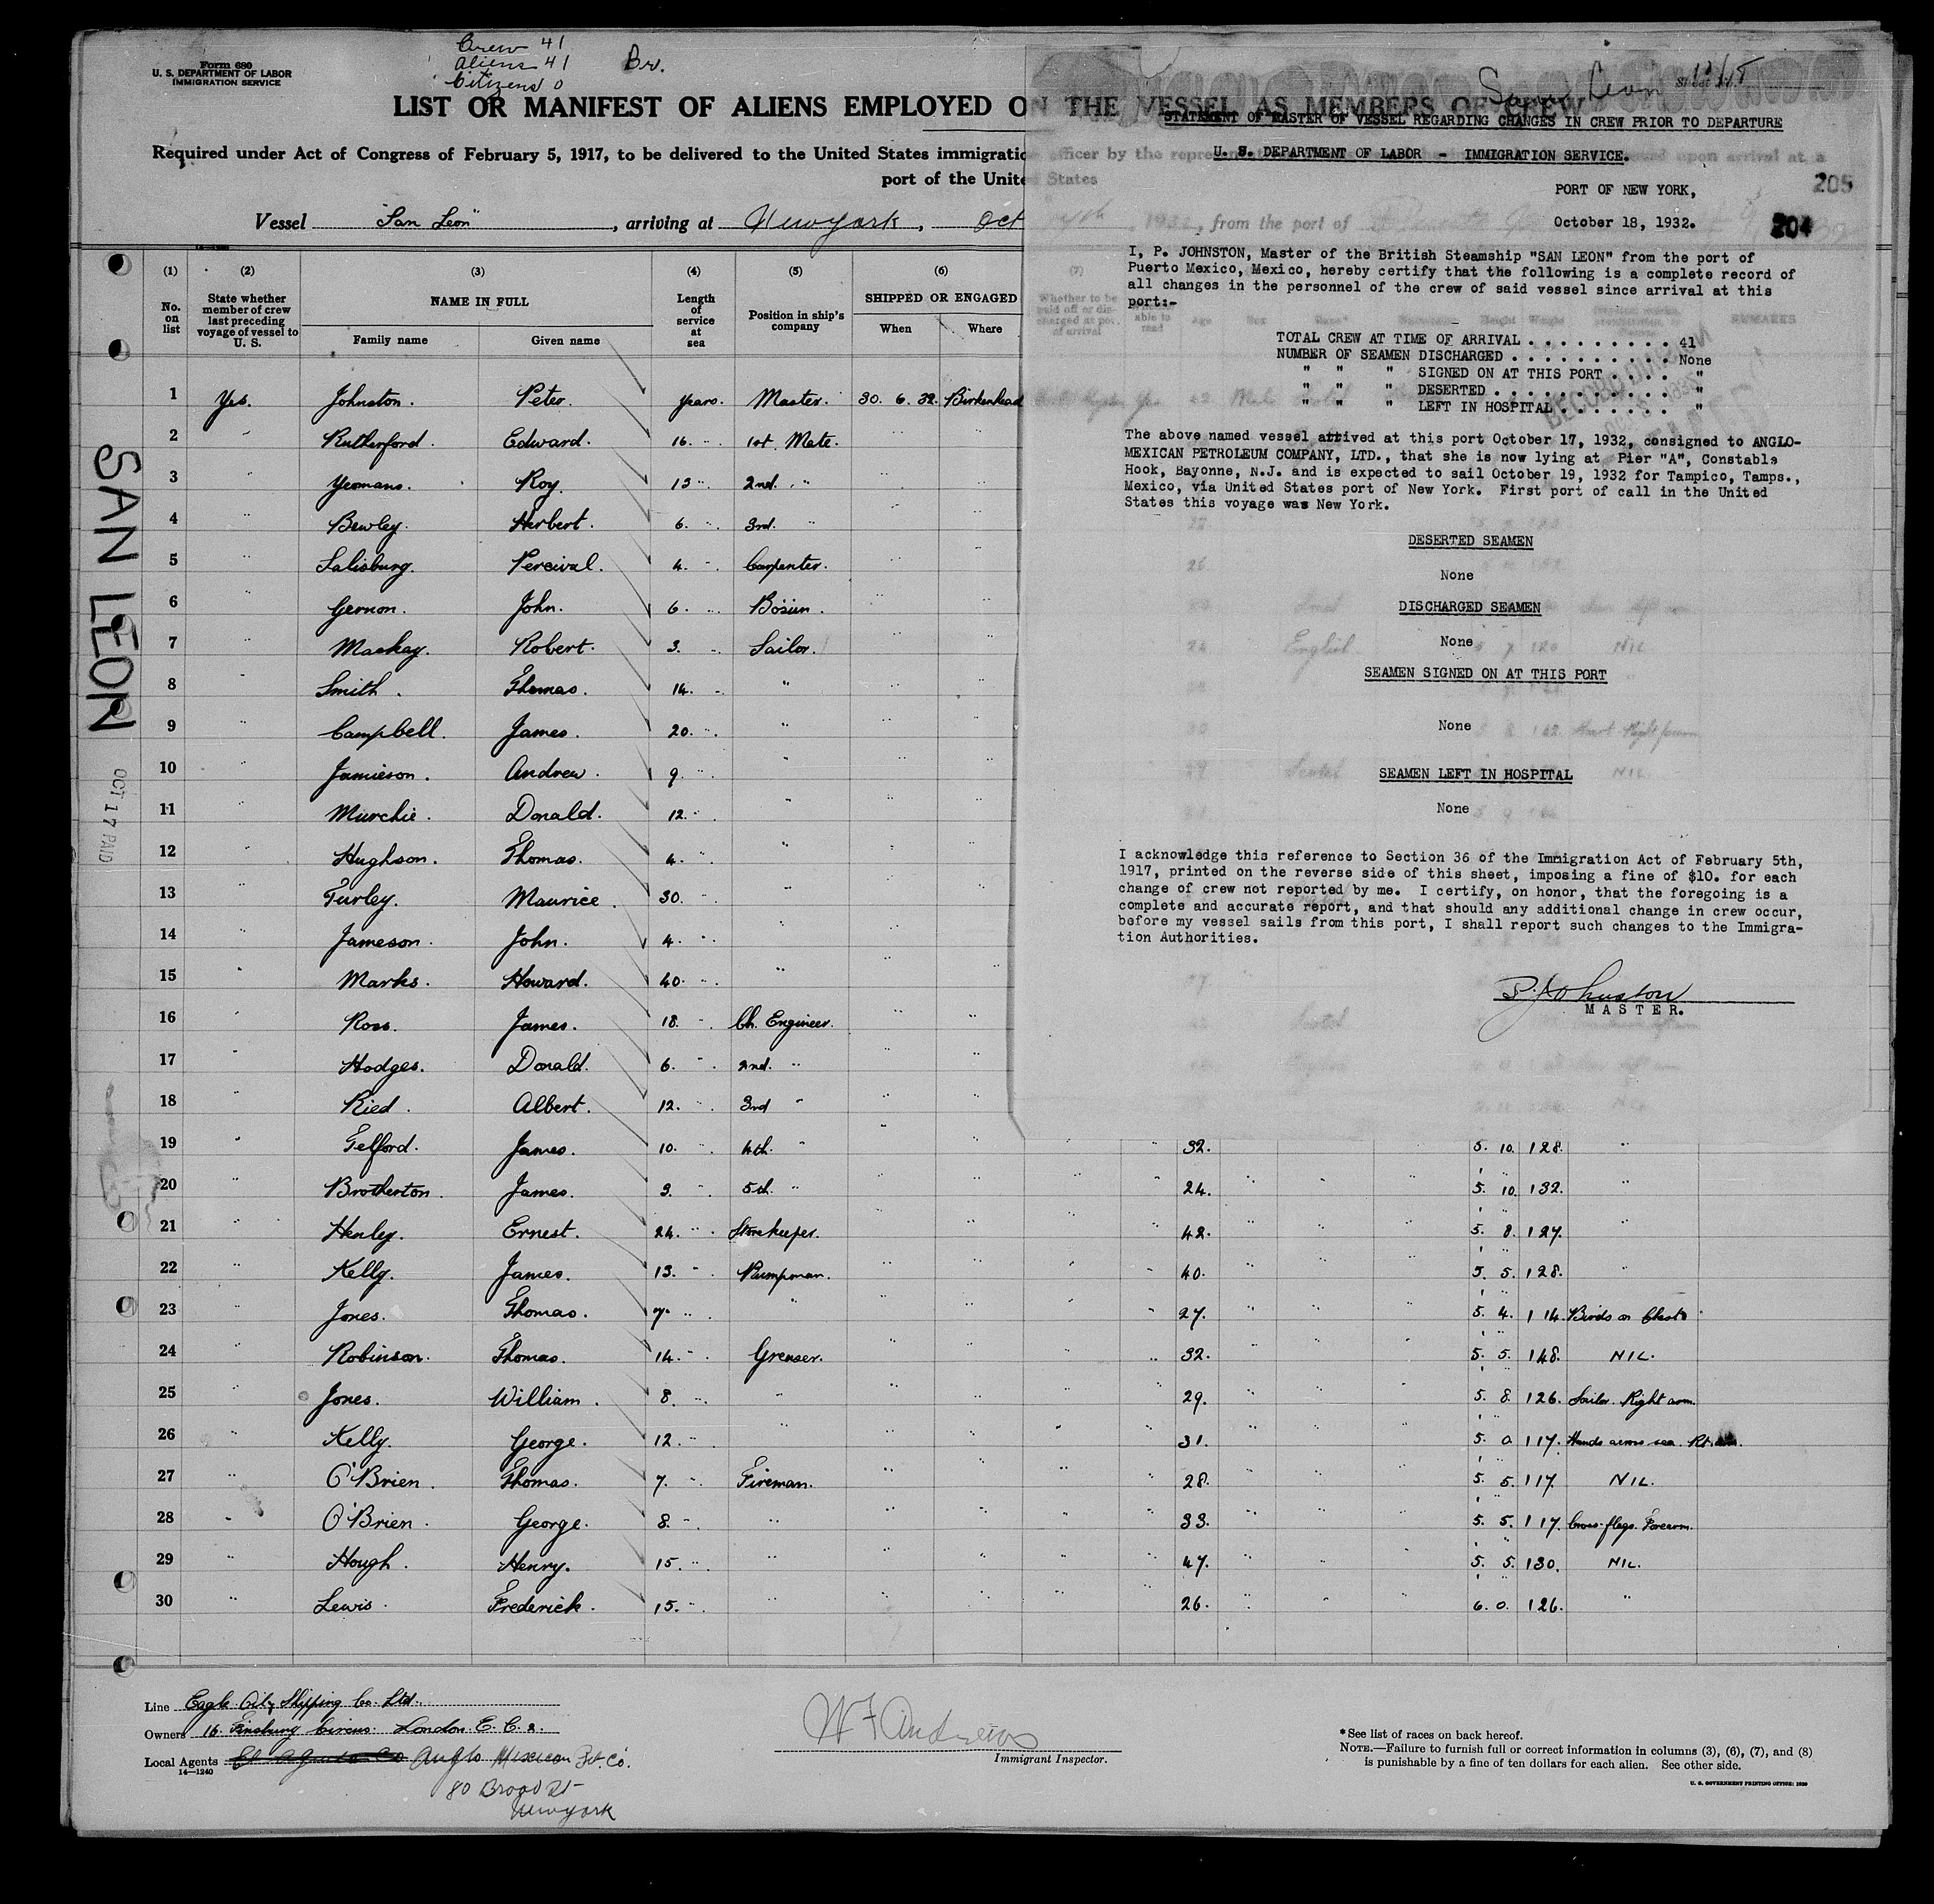 Form 680
U. S. DEPARTMENT OF LABOR
IMMIGRATION SERVICE
Crew 41
Aliens 41
Citizens 0
Br.
LIST OR MANIFEST OF ALIENS EMPLOYED ON THE VESSEL AS MEMBERS OF CREW
Required under Act of Congress of February 5, 1917, to be delivered to the United States immigratio
port of the Unite
Vessel "San Leon", arriving at New york, Oct
(1) (2) (3) (4) (5) (6)
No. on list
State whether member of crew last preceding voyage of vessel to U. S.
NAME IN FULL
Family name Given name
Length of service at sea
Position in ship's company
SHIPPED OR ENGAGED
When Where
1 Yes. Johnston. Peter. years. Master. 30. 6. 32. Birkenhead
2 " Rutherford. Edward. 16. " 1st. Mate. " "
3 " Yeomans. Roy. 13 " 2nd. " " "
4 " Bewley. Herbert. 6. " 3rd. " " "
5 " Salisbury. Percival. 4. " Carpenter. " "
6 " Gernon. John. 6. " Bosun. " "
7 " Mackay. Robert. 3. " Sailor. " "
8 " Smith. Thomas. 14. " " " "
9 " Campbell. James. 20. " " " "
10 " Jamieson. Andrew. 9. " " " "
11 " Murchie. Donald. 12. " " " "
12 " Hughson. Thomas. 4. " " " "
13 " Turley. Maurice. 30. " " " "
14 " Jameson. John. 4. " " " "
15 " Marks. Howard. 40. " " " "
16 " Ross. James. 18. " Ch. Engineer. " "
17 " Hodges. Donald. 6. " 2nd. " " "
18 " Ried. Albert. 12. " 3rd " " "
19 " Telford. James. 10. " 4th. " " " " 32. " " " 5. 10. 128. "
20 " Brotherton. James. 3. " 5th. " " " " " 24. " " " 5. 10. 132. "
21 " Henley. Ernest. 24. " Storekeeper. " " " " 42. " " " 5. 8. 127. "
22 " Kelly. James. 13. " Pumpman. " " " " 40. " " " 5. 5. 128. "
23 " Jones. Thomas. 7. " " " " " " 27. " " " 5. 4. 114. Birds on Chest
24 " Robinson. Thomas. 14. " Greaser. " " " " 32. " " " 5. 5. 148. NIL.
25 " Jones. William. 8. " " " " " " 29. " " " 5. 8. 126. Sailor. Right arm.
26 " Kelly. George. 12. " " " " " " 31. " " " 5. 0. 117. Hands arms
27 " O'Brien. Thomas. 7. " Fireman. " " " " 28. " " " 5. 5. 117. NIL.
28 " O'Brien. George. 8. " " " " " " 33. " " " 5. 5. 117. Cross flags. Forearm.
29 " Hough. Henry. 15. " " " " " " 47. " " " 5. 5. 130. NIL.
30 " Lewis. Frederick. 15. " " " " " " 26. " " " 6. 0. 126. "
SAN LEON
OCT 17 PAID
Line Eagle Oil & Shipping Co. Ltd.
Owners 16. Finsbury Circus. London. E. C. 2.
Local Agents Anglo Mexican Pet. Co.
14—1240
80 Broad St
New york
W F Andrews
Immigrant Inspector.
* See list of races on back hereof.
NOTE.—Failure to furnish full or correct information in columns (3), (6), (7), and (8)
is punishable by a fine of ten dollars for each alien. See other side.
U. S. GOVERNMENT PRINTING OFFICE: 1930
San Leon
STATEMENT OF MASTER OF VESSEL REGARDING CHANGES IN CREW PRIOR TO DEPARTURE
U. S. DEPARTMENT OF LABOR - IMMIGRATION SERVICE.
PORT OF NEW YORK,
205
October 18, 1932.
204
I, P. JOHNSTON, Master of the British Steamship "SAN LEON" from the port of
Puerto Mexico, Mexico, hereby certify that the following is a complete record of
all changes in the personnel of the crew of said vessel since arrival at this
port:-
TOTAL CREW AT TIME OF ARRIVAL . . . . . . . . . 41
NUMBER OF SEAMEN DISCHARGED . . . . . . . . . . None
" " " SIGNED ON AT THIS PORT . . . . "
" " " DESERTED . . . . . . . . . . . "
" " " LEFT IN HOSPITAL . . . . . . . "
The above named vessel arrived at this port October 17, 1932, consigned to ANGLO-
MEXICAN PETROLEUM COMPANY, LTD., that she is now lying at Pier "A", Constable
Hook, Bayonne, N.J. and is expected to sail October 19, 1932 for Tampico, Tamps.,
Mexico, via United States port of New York. First port of call in the United
States this voyage was New York.
DESERTED SEAMEN
None
DISCHARGED SEAMEN
None
SEAMEN SIGNED ON AT THIS PORT
None
SEAMEN LEFT IN HOSPITAL
None
I acknowledge this reference to Section 36 of the Immigration Act of February 5th,
1917, printed on the reverse side of this sheet, imposing a fine of $10. for each
change of crew not reported by me. I certify, on honor, that the foregoing is a
complete and accurate report, and that should any additional change in crew occur,
before my vessel sails from this port, I shall report such changes to the Immigra-
tion Authorities.
P. Johnston
MASTER.